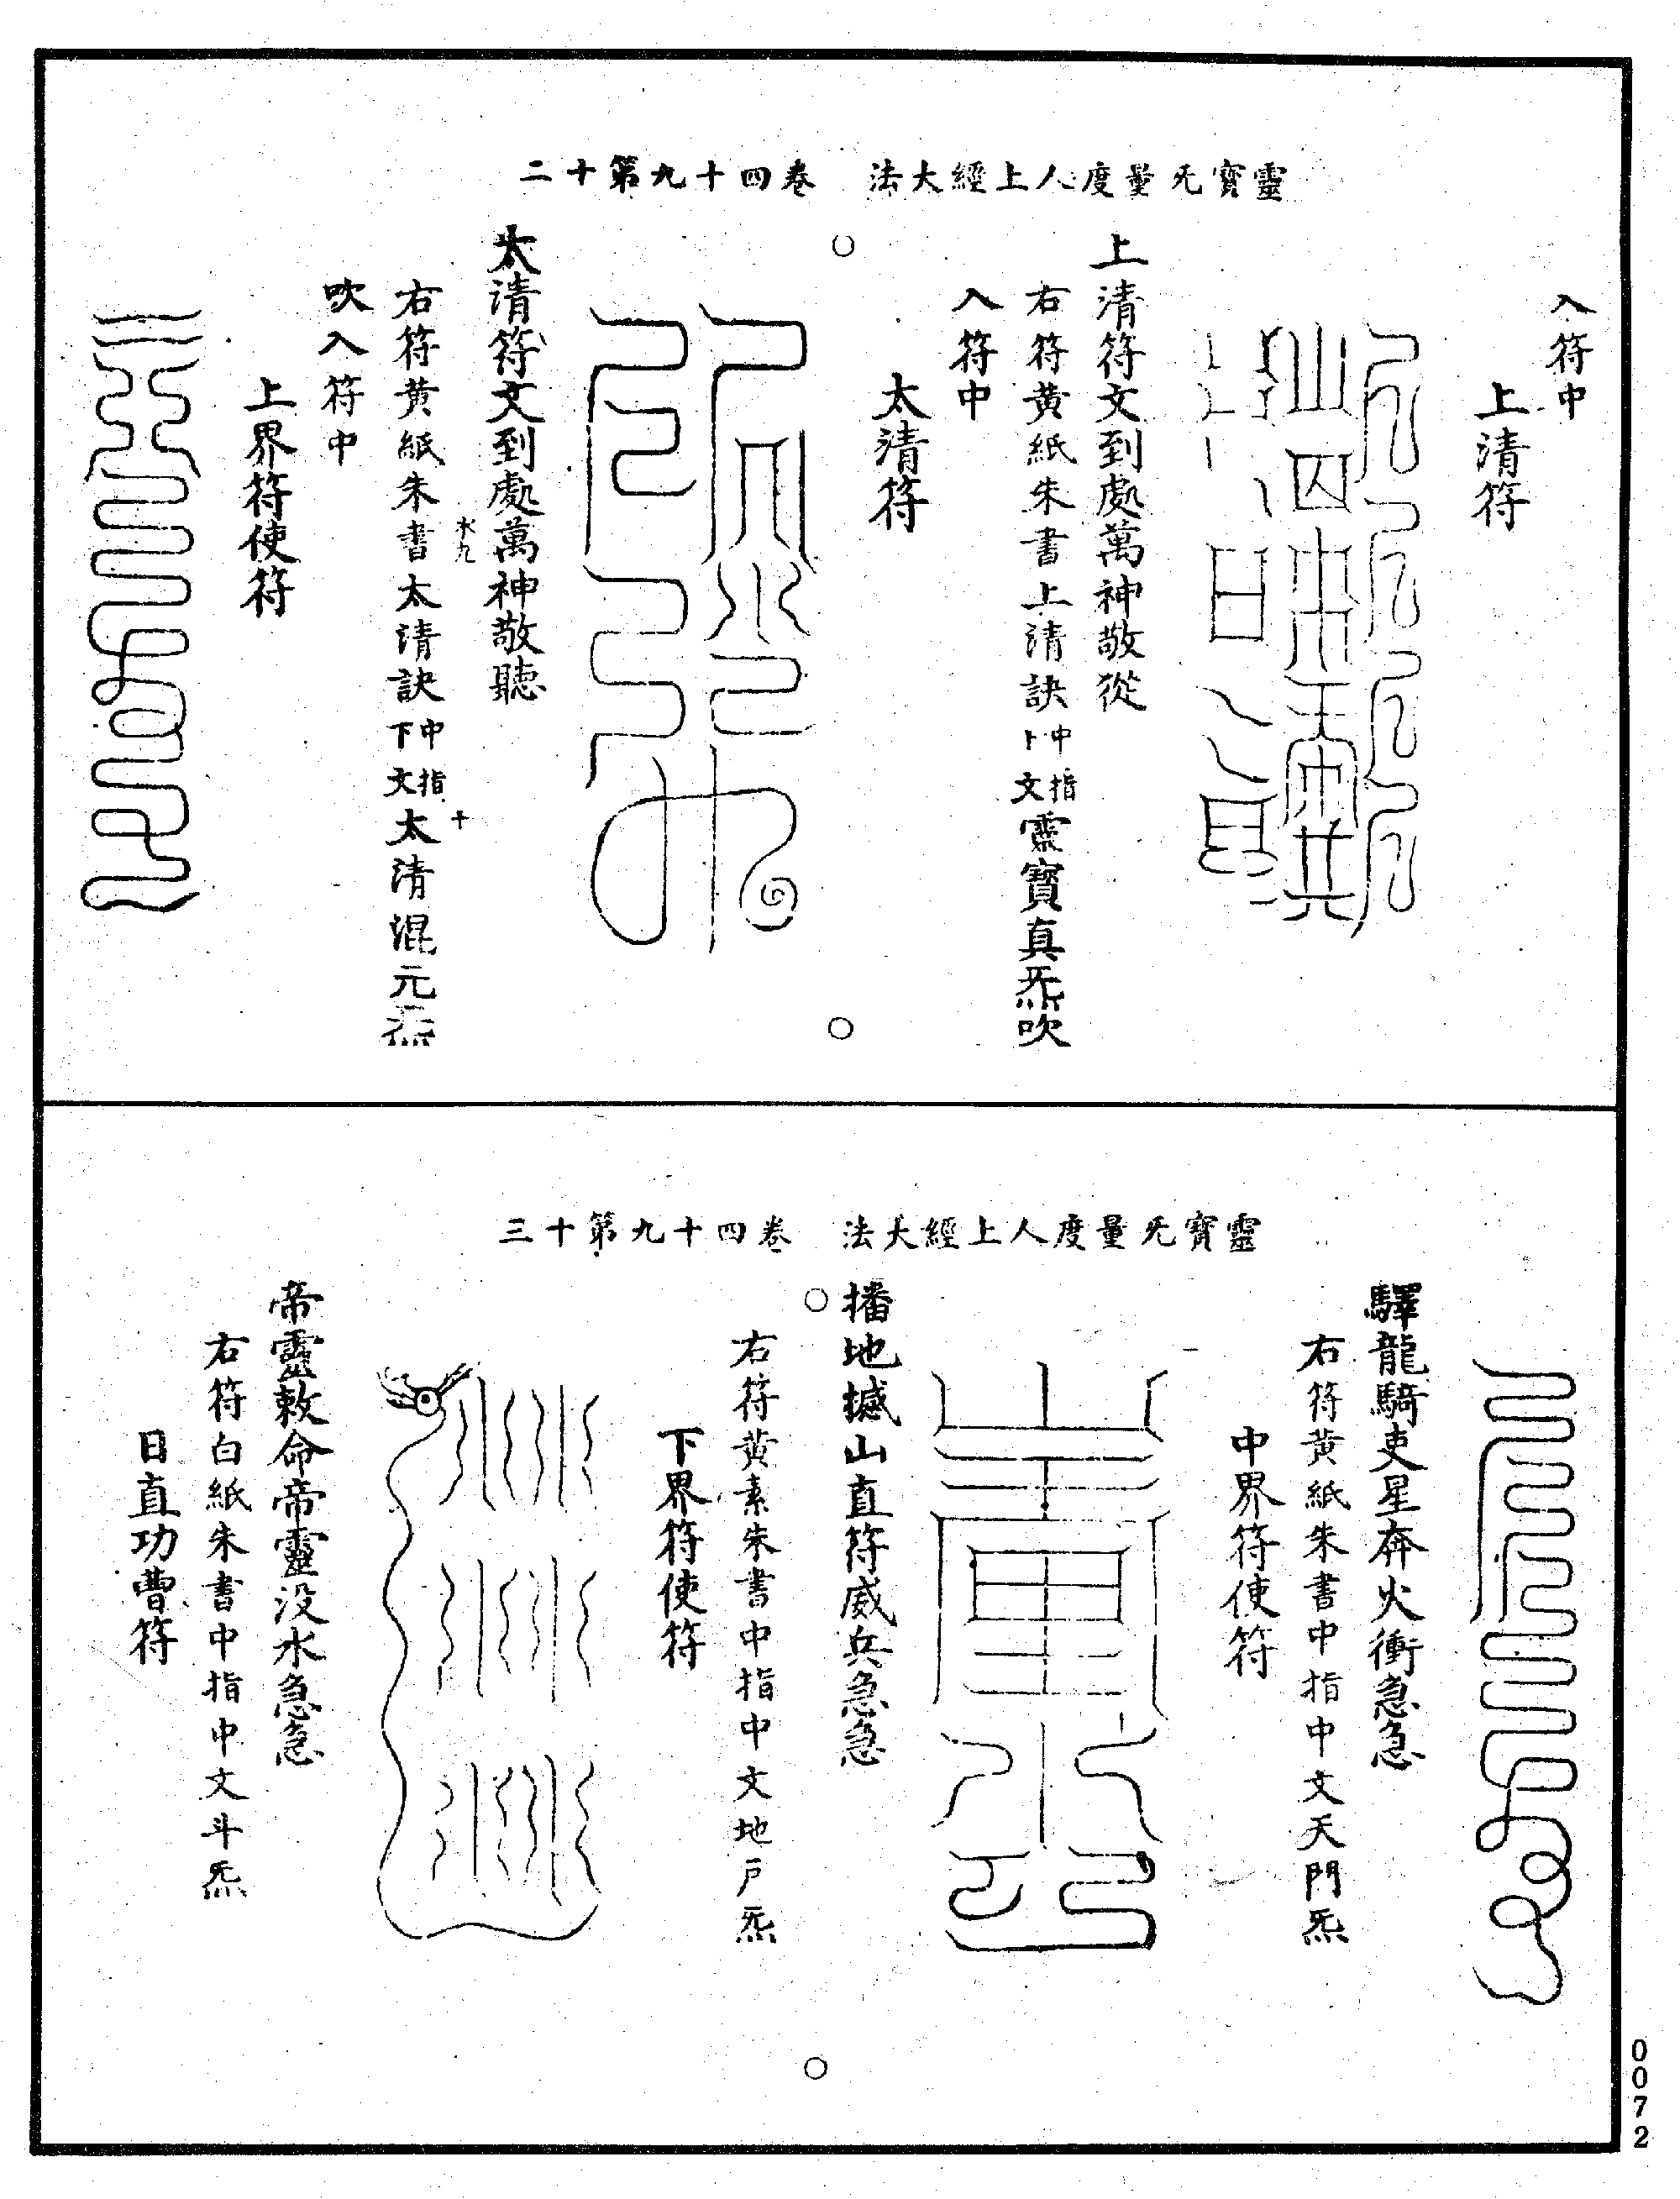 靈寶无量度人上經大法　卷四十九第十二
入符中
上清符
上清符文到處萬神敬從
右符黃紙朱書上清訣中指卜文靈寶真炁吹
入符中
太清符
太清符文到處萬神敬聽
水九　十
右符黃紙朱書太清訣中指下文太清混元炁
吹入符中
上界符使符
靈寶无量度人上經大法　卷四十九第十三
驛龍騎吏星奔火衝急急
右符黃紙朱書中指中文天門炁
中界符使符
播地撼山直符威兵急急
右符黃素朱書中指中文地戶炁
下界符使符
帝靈敕命帝靈没水急急
右符白紙朱書中指中文斗炁
日直功曹符
0072